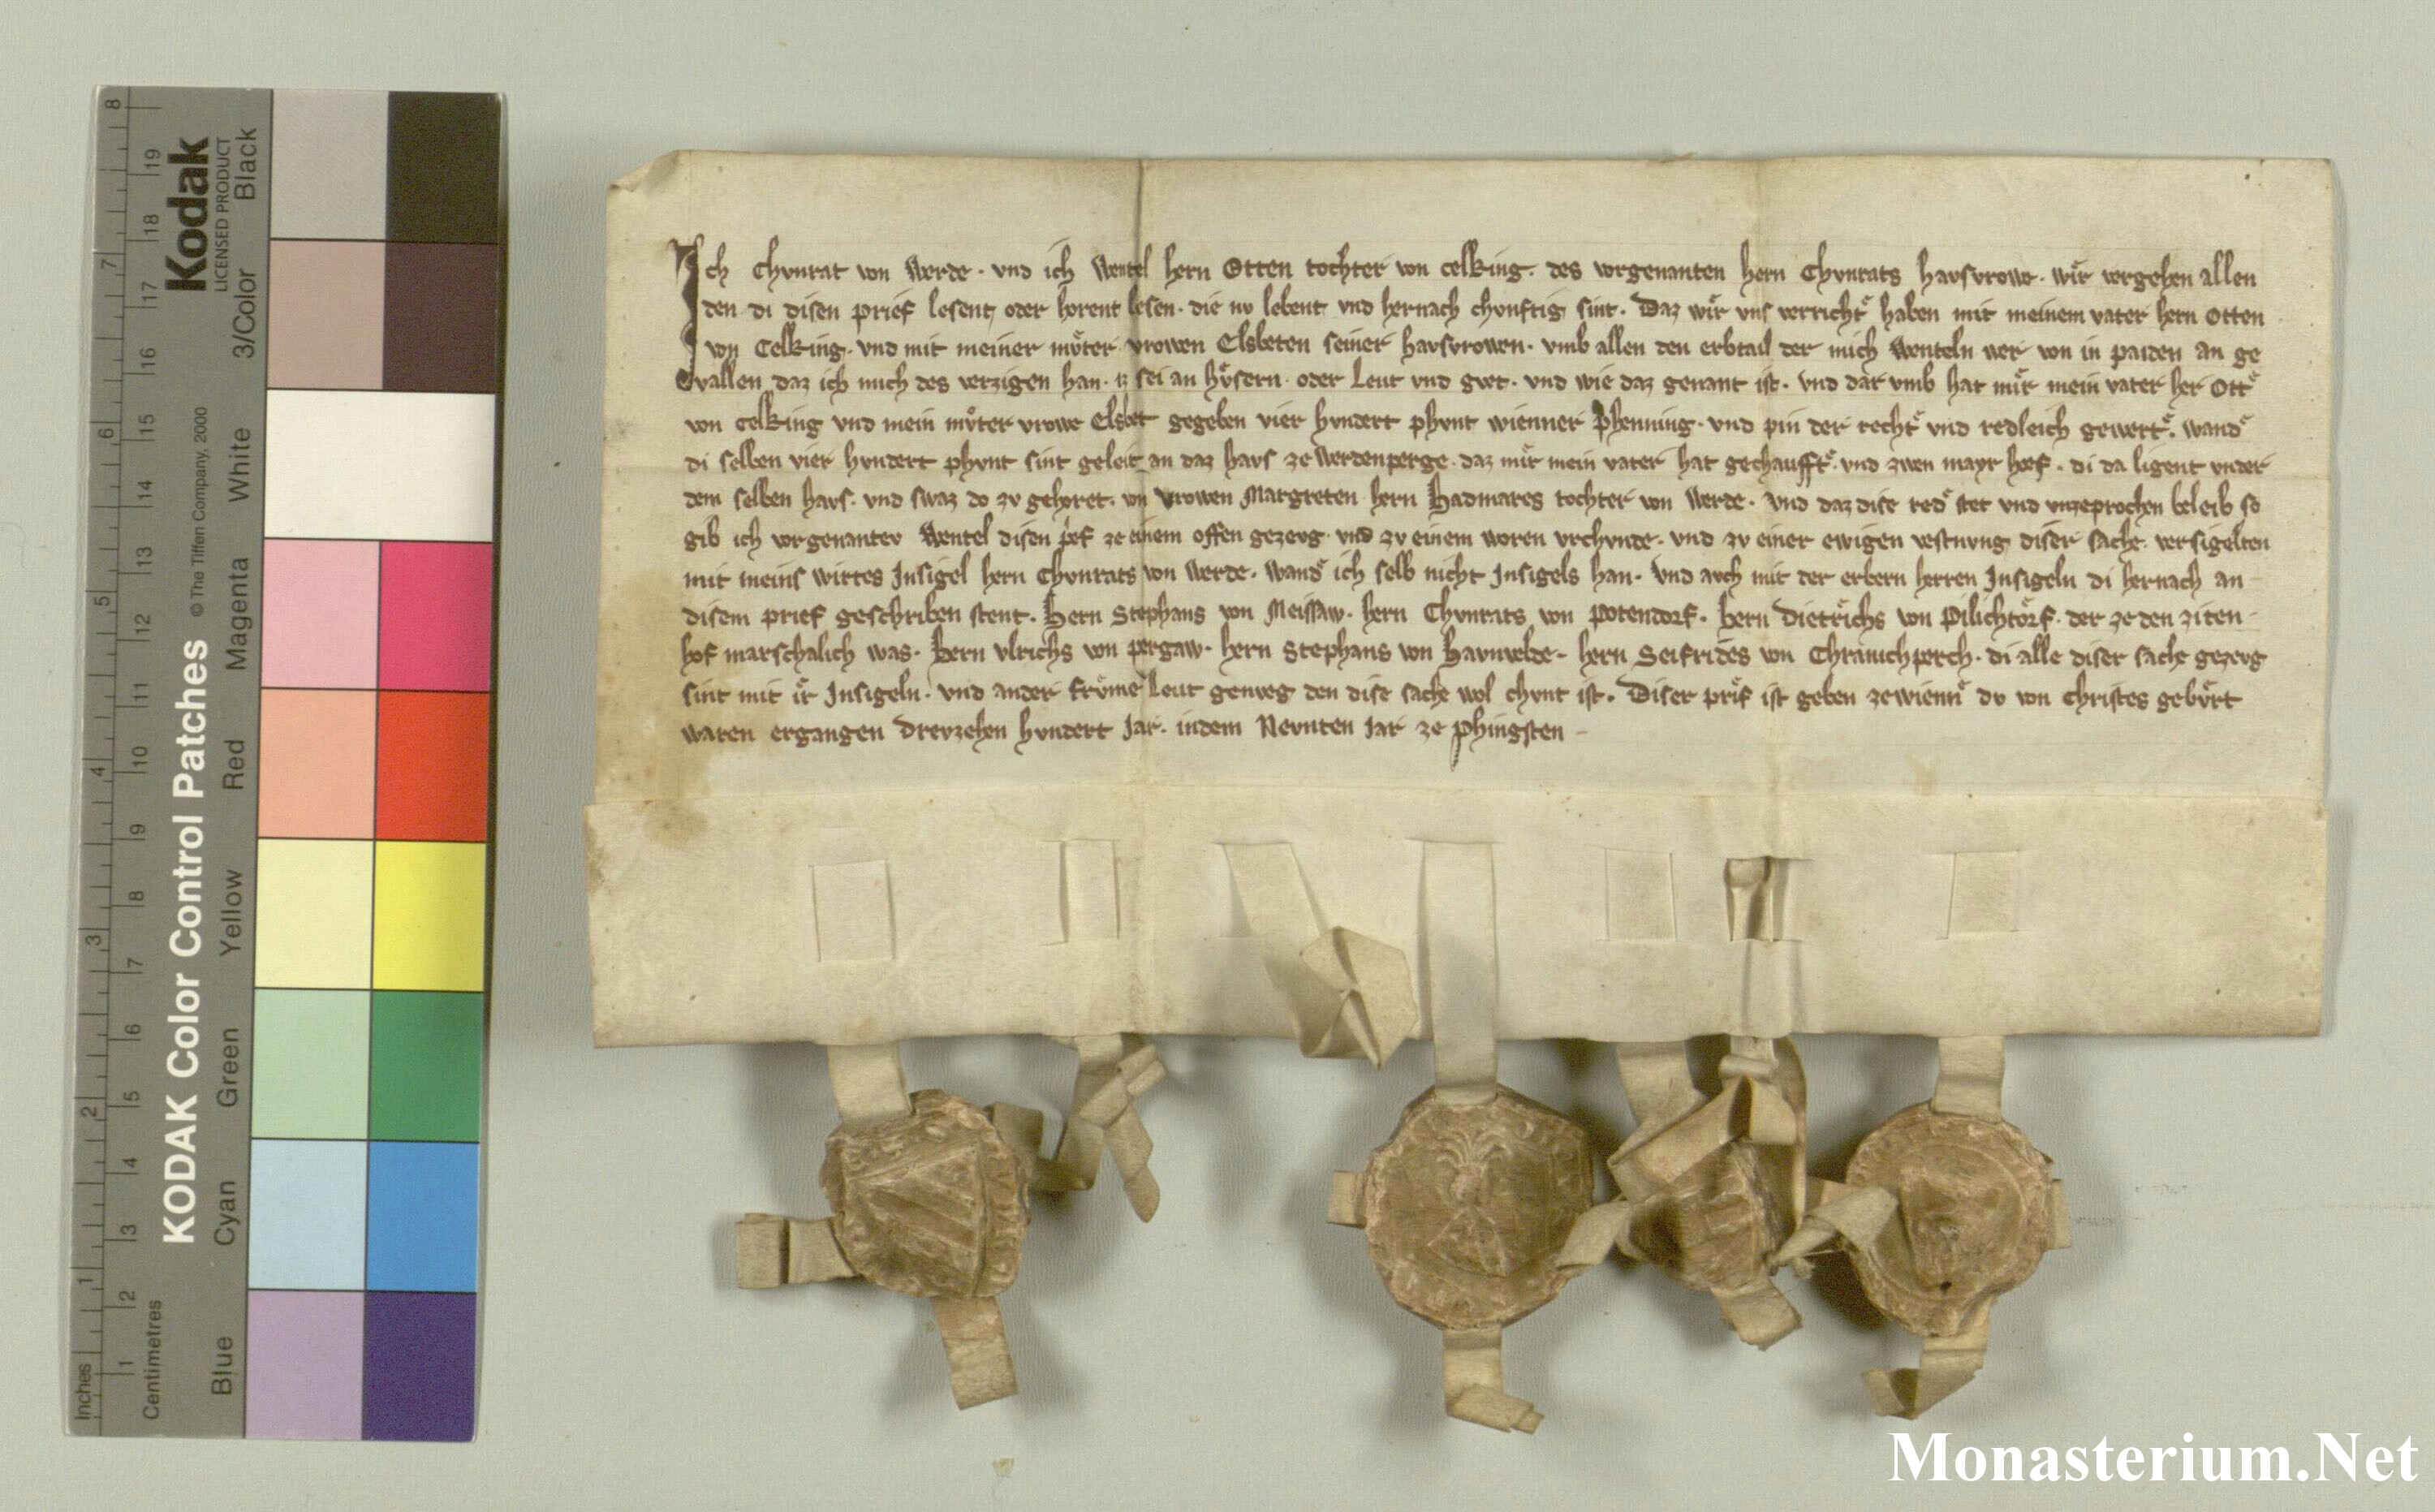 Ich Chvnrat von Werde · vnd ich Wentel hern Otten tochter von Celking · des vorgenanten hern Chvnrats havsvrowe · wir vergehen allen
den di disen prief lesent oder horent lesen · die nv lebent vnd hernach chvnftig sint · Daz wir vns verricht haben mit meinem vater hern Otten
von Celking · vnd mit meiner mvͦter vrowen Elsbeten seiner havsvrowen · vmb allen den erbtail der mich Wenteln von in paiden an ge
vallen daz ich mich des verzigen han · iz sei an hvͤsern · oder Leut vnd gvt · vnd wie daz genant ist · vnd dar vmb hat mir mein vater her Ott
von Celking vnd mein mvͦter vrowe Elsbet gegeben vier hvndert phvnt wienner phenning · vnd pin der recht vnd redleich gewert · wand
di selben vier hvndert phvnt sint geleit an daz havs ze Werdenperge · daz mir mein vater hat gechaufft · vnd zwen mayr hoef · di da ligent vnder
dem selben havs · vnd swaz do zv gehoret · von vrowen Margreten hern Hadmares tochter von Werde · vnd daz dise red stet vnd vnzeprochen beleib so
gib ich vorgenantev Wentel disen prief ze einem offen gezevg · vnd zv einem woren vrchvnde · vnd zv einer ewigen vestnvng diser sache · versigelten
mit meins wirtes Insigel hern Chvnrats von Werde · wand ich selb nicht Insigels han · vnd avch mit der erbern herren Insigeln di hernach an
disem prief geschriben stent · Hern Stephans von Meissaw · hern Chvnrats von Potendorf · hern Dietrichs von Pilichtorf · der ze den ziten
hof marschalich was · hern Vlrichs von Pergaw · hern Stephans von Havnvelde · hern Seifrides von Chranichperch · di alle diser sache gezevg
sint mit ir Insigeln · vnd ander frvme Leut genveg den dise sache wol chvnt ist · Diser prif ist geben ze wienn do von Christes gebvrt
waren ergangen Drevzehen hvndert Jar · in dem Nevnten Jar ze phingsten
KODAK Color Control Patches © The Tiffen Company, 2000
Kodak
LICENSED PRODUCT
Blue Cyan Green Yellow Red Magenta White 3/Color Black
Inches 1 2 3 4 5 6 7 8
Centimetres 1 2 3 4 5 6 7 8 9 10 11 12 13 14 15 16 17 18 19
Monasterium.Net